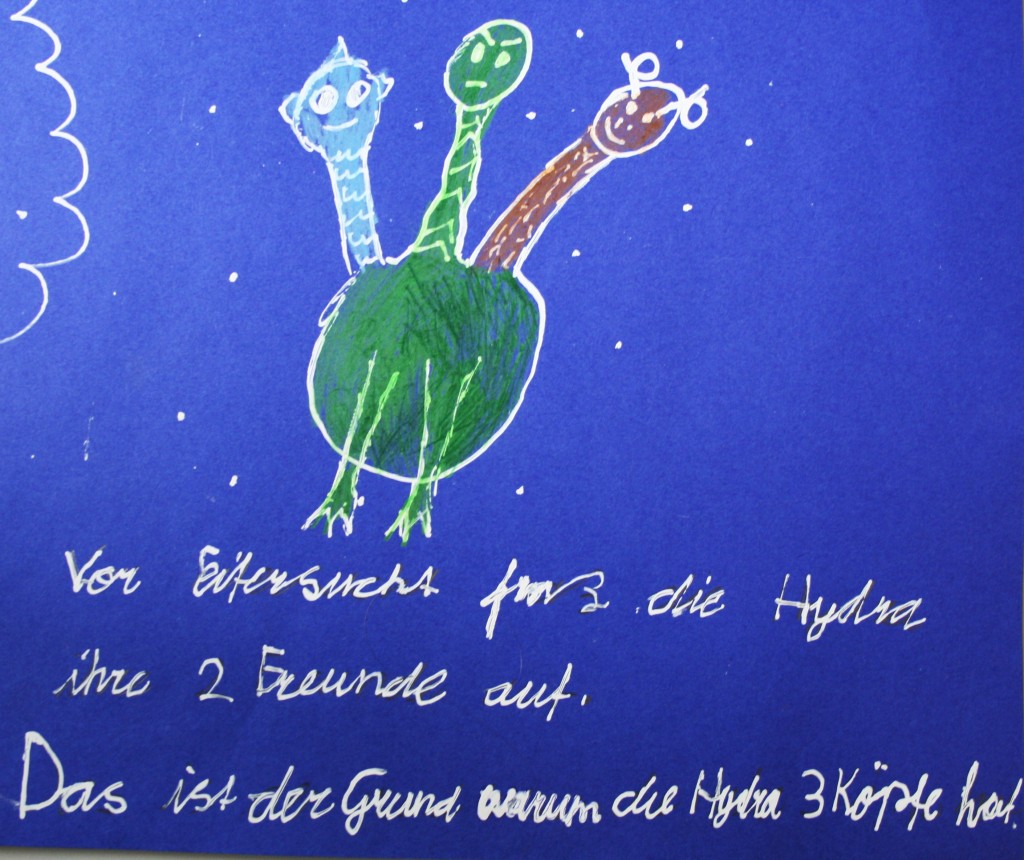 Vor Eifersucht fraß die Hydra
ihre 2 Freunde auf.
Das ist der Grund warum die Hydra 3 Köpfe hat.